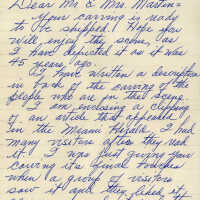 Dear Mr & Mrs Martin =
your carving is ready
to be shipped. I hope you
will enjoy the scene, as
I have depicted it as it was
45 years, ago.
I have written a description
in back of the carving of the
people who are in this scene.
I am enclosing a clipping
of an article that appeared
in the Miami Herald, I had
many visitors after they read
it. I was just giving your
carving its final touches
when a group of visitors
saw it and they liked it,